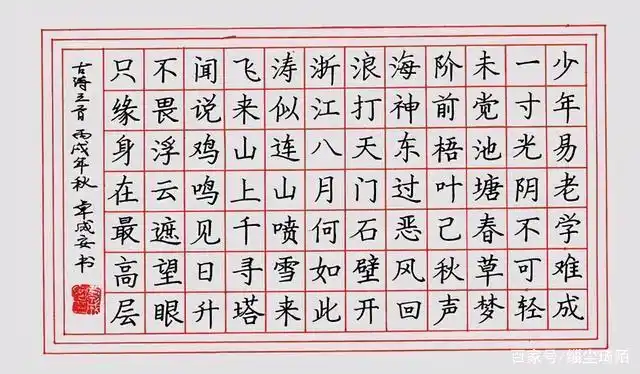 少年易老学难成
一寸光阴不可轻
未觉池塘春草梦
阶前梧叶己秋声
海神东过恶风回
浪打天门石壁开
浙江八月何如此
涛似连山喷雪来
飞来山上千寻塔
闻说鸡鸣见日升
不畏浮云遮望眼
只缘身在最高层
古诗三首 丙戌年秋 书
百家号/